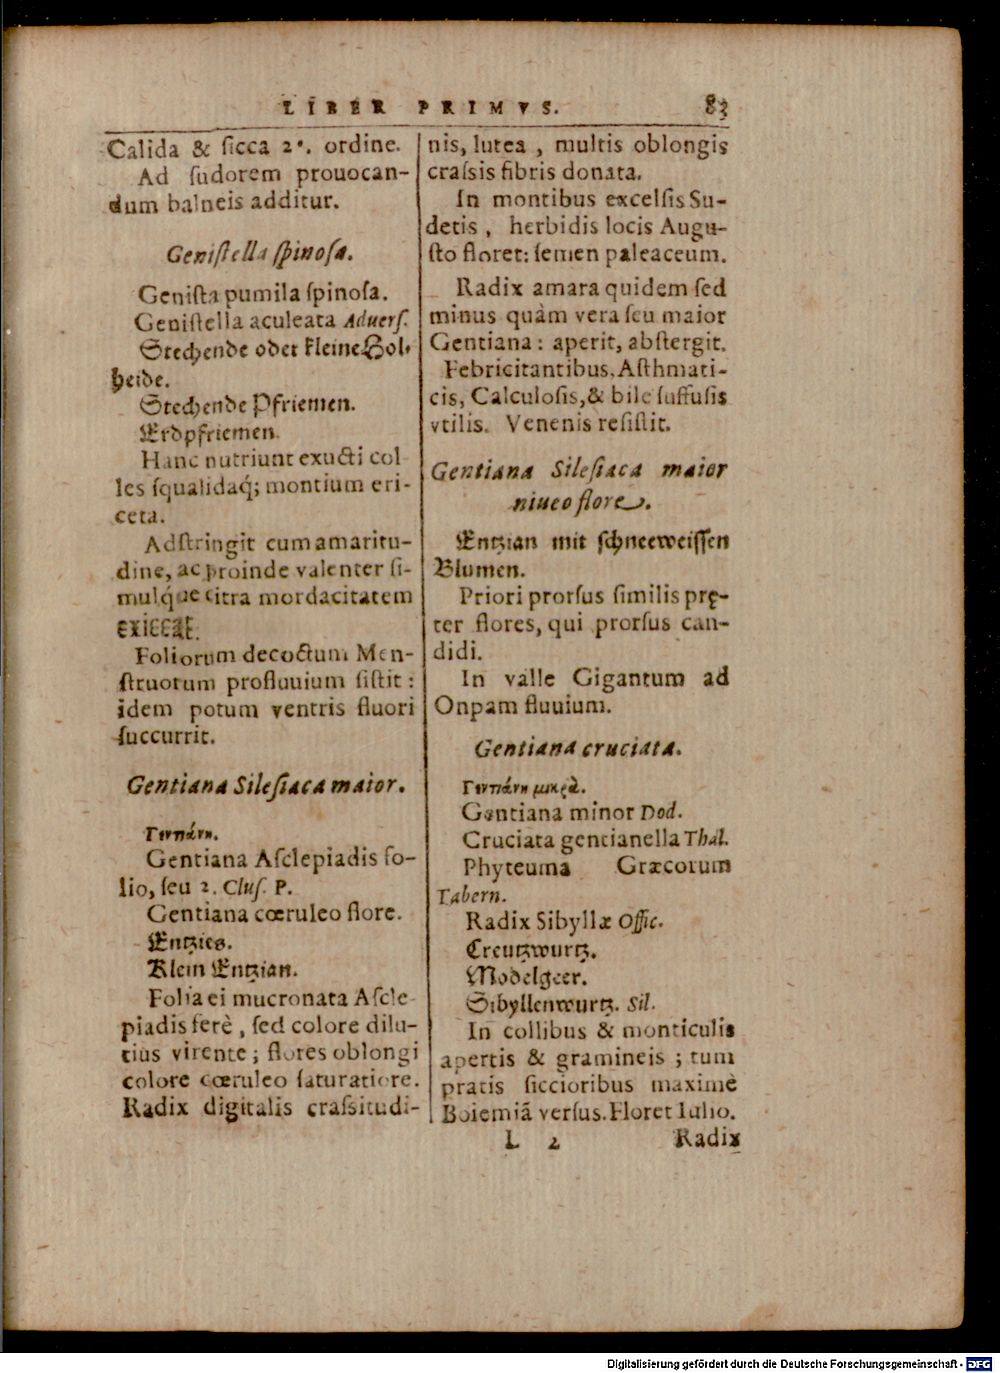 LIBER PRIMVS. 83
Calida & ſicca 2°. ordine.
Ad ſudorem prouocan-
dum balneis additur.
Geniſtella ſpinoſa.
Geniſta pumila ſpinoſa.
Geniſtella aculeata Aduerſ.
Stechende oder kleine Hol-
heide.
Stechende Pfriemen.
Erdpfriemen.
Hanc nutriunt exucti col
les ſqualidaq́; montium eri-
ceta.
Adſtringit cum amaritu-
dine, ac proinde valenter ſi-
mulq́ue citra mordacitatem
exiccat.
Foliorum decoctum Men-
ſtruorum profluuium ſiſtit:
idem potum ventris fluori
ſuccurrit.
Gentiana Sileſiaca maior.
Γεντιάνη.
Gentiana Aſclepiadis fo-
lio, ſeu 2. Cluſ. P.
Gentiana cœruleo flore.
Entzies.
Klein Entzian.
Folia ei mucronata Aſcle-
piadis ferè, ſed colore dilu-
tius virente; flores oblongi
colore cœruleo ſaturatiore.
Radix digitalis craſsitudi-
nis, lutea, multis oblongis
craſsis fibris donata.
In montibus excelſis Su-
detis, herbidis locis Augu-
ſto floret: ſemen paleaceum.
Radix amara quidem ſed
minus quàm vera ſeu maior
Gentiana: aperit, abſtergit.
Febricitantibus, Aſthmati-
cis, Calculoſis, & bile ſuffuſis
vtilis. Venenis reſiſtit.
Gentiana Sileſiaca maior
niueo flore.
Entzian mit ſchneeweiſſen
Blumen.
Priori prorſus ſimilis prę－
ter flores, qui prorſus can-
didi.
In valle Gigantum ad
Onpam fluuium.
Gentiana cruciata.
Γεντιάνη μικρὰ.
Gentiana minor Dod.
Cruciata gentianella Thal.
Phyteuma Græcorum
Tabern.
Radix Sibyllæ Offic.
Creutzwurtz.
Modelgeer.
Sibyllenwurtz. Sil.
In collibus & monticulis
apertis & gramineis; tum
pratis ſiccioribus maximè
Boiemiã verſus. Floret Iulio.
L 2 Radix
Digitalisierung gefördert durch die Deutsche Forschungsgemeinschaft - DFG